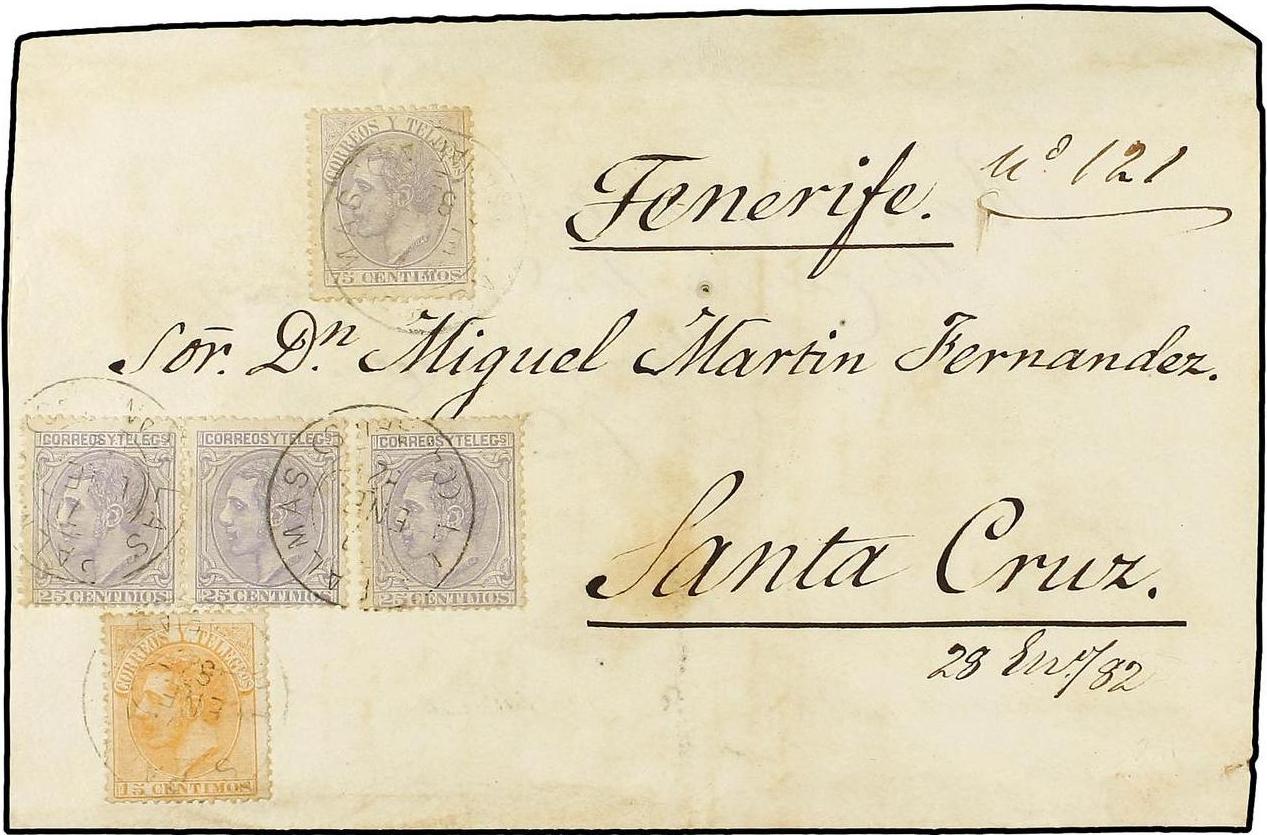 CORREOS Y TELEGS
75 CENTIMOS
Tenerife.
nº 121
Sor. Dn. Miguel Martin Fernandez.
CORREOS Y TELEGS CORREOS Y TELEGS CORREOS Y TELEGS
25 CENTIMOS 25 CENTIMOS 25 CENTIMOS
Santa Cruz.
CORREOS Y TELEGOS
15 CENTIMOS
28 Enº/82